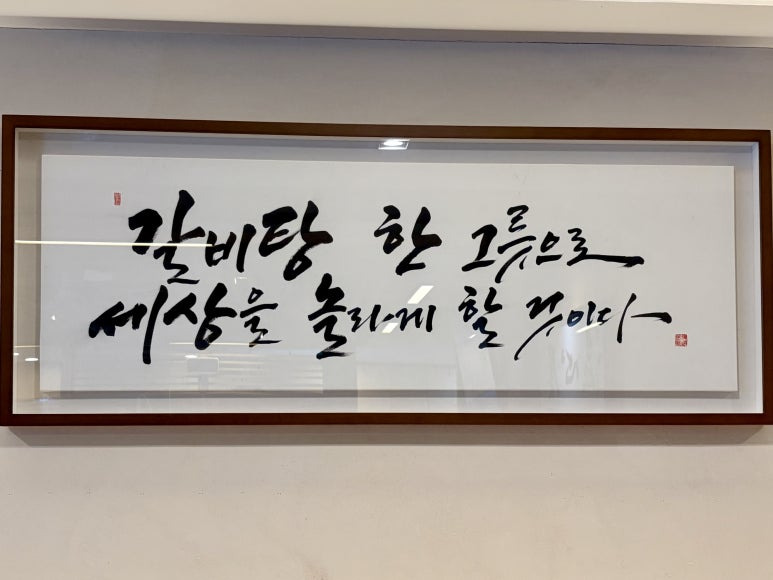 갈비탕 한 그릇으로
세상을 놀라게 할 것이다